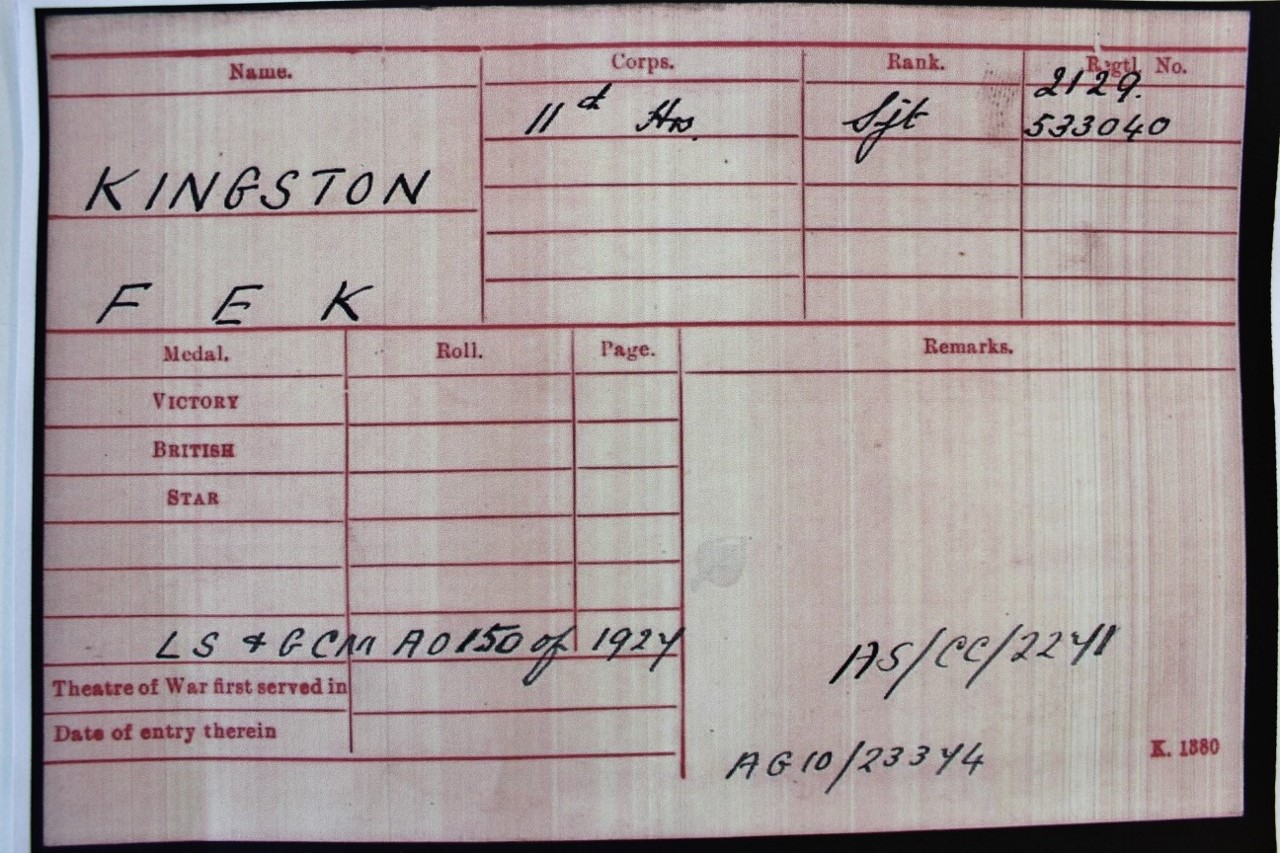 Name. Corps. Rank. Regtl. No.
2129.
11th Hrs. Sjt 533040
KINGSTON
F E K
Medal. Roll. Page. Remarks.
VICTORY
BRITISH
STAR
LS & GCM AO 150 of 1924
AS/CC/2241
Theatre of War first served in
Date of entry therein
AG 10/23344
K. 1380